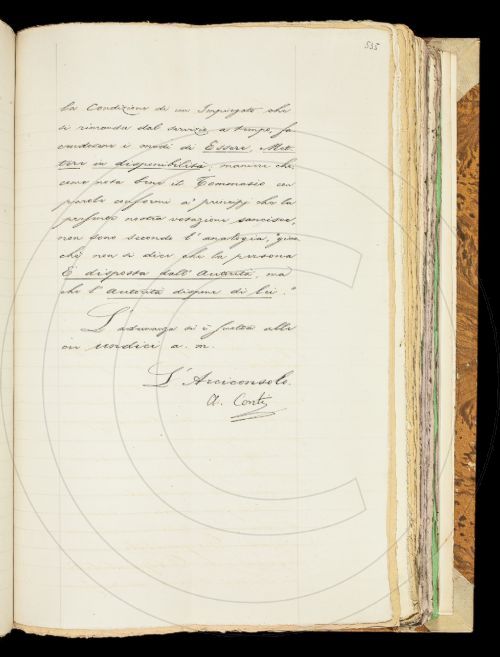 535
la Condizione di un Impiegato che
si rimanda dal servizio a tempo, fa-
cendosene i modi di Essere, Met-
tere in disponibilità; maniere che,
come nota bene il Tommaseo con
parole conformi a' principj che la
presente nostra votazione sancisce,
non sono secondo l' analogia, "giac-
chè non si dice che la persona
È disposta dall' Autorità, ma
che l' Autorità dispone di lei."
L' adunanza si è sciolta alle
ore undici a. m.
L' Arciconsolo.
A. Conti